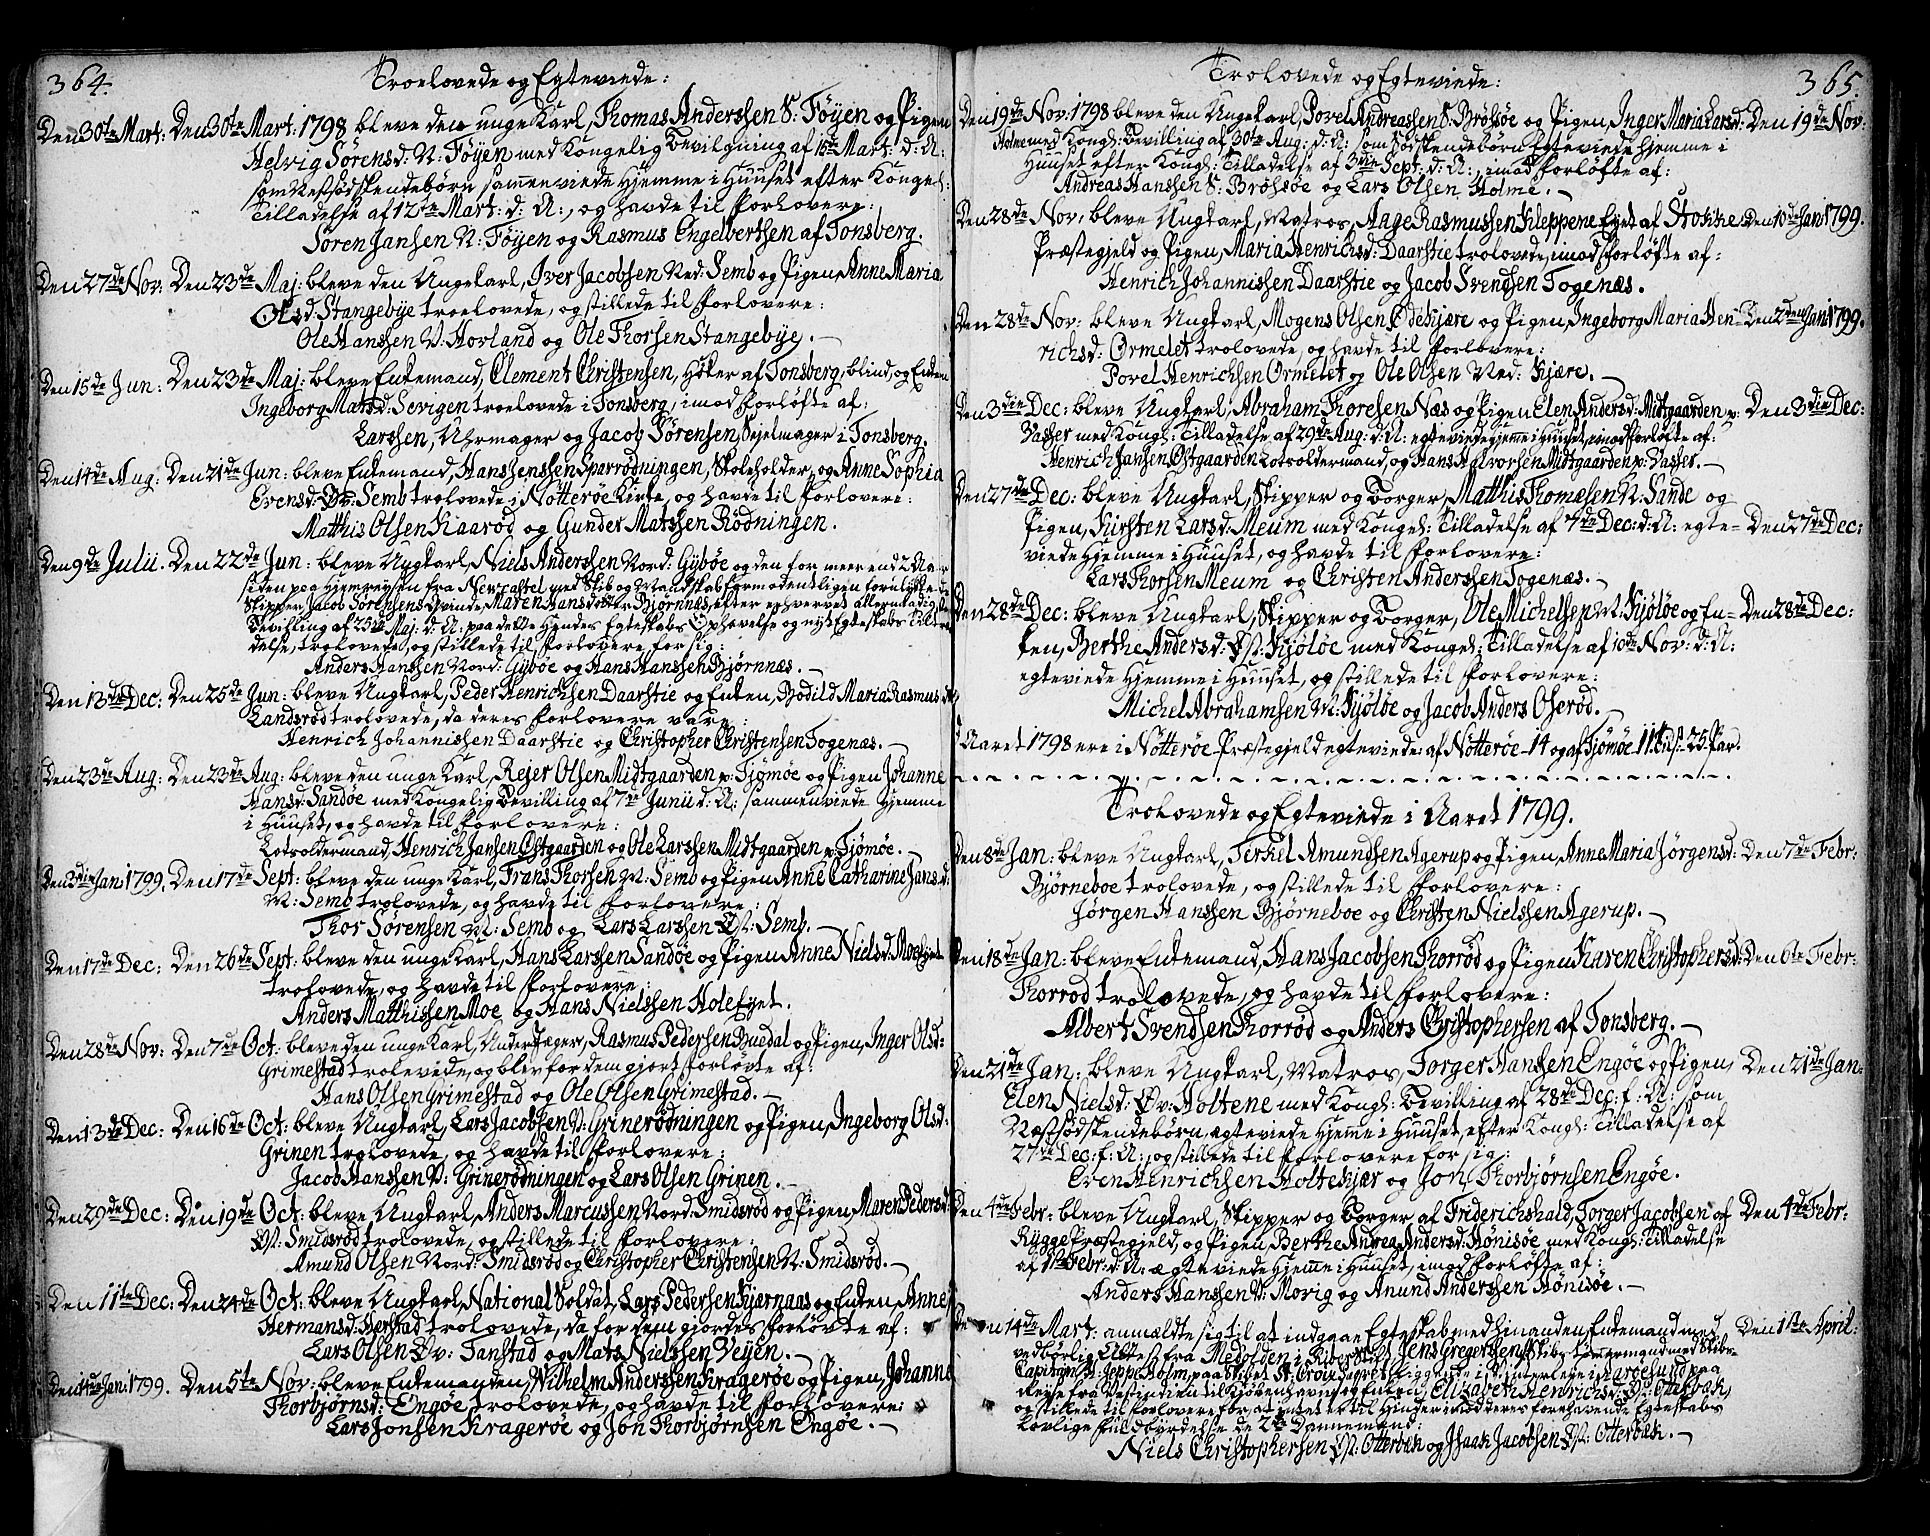 364.
Troelovede og Egteviede:
Den 30te Mart: Den 30te Mart: 1798 bleve den unge Karl, Thomas Anderssen S: Föyen og Pigen
Helvig Sörensd: N: Föyen med Kongelig Bevilgning af 15te Mart: d: A:
som Nestsödskendebörn sammenviede Hjemme i Huuset efter Kongel:
Tilladelse af 12te Mart: d: A:, og havde til Forlovere:
Sören Jansen N: Föyen og Rasmus Engelbertsen af Tonsberg.
Den 27de Nov: Den 23de Maj: bleve den Ungkarl, Iver Jacobsen Ned: Semb og Pigen, Anne Maria
Olsd: Stangebye troelovede, og stillede til Forlovere:
Ole Hanssen V: Horland og Ole Thorsen Stangebye. —
Den 15de Jun: Den 23de Maj: bleve Enkemand, Clement Christensen, Höker af Tonsberg, blind, og Enken
Ingeborg Matsd: Sevigen troelovede i Tonsberg, imod Forlöfte af:
Larssen, Uhrmager og Jacob Sörensen, Sejelmager i Tonsberg.
Den 14de Aug: Den 21de Jun: bleve Enkemand, Hans Jenssen Sparrödningen, Skoleholder, og Anne Sophia
Evensd: Öv: Semb trolovede i Nötteröe Kirke, og havde til Forlovere:
Matthis Olsen Kaaröd og Gunder Matssen Rödningen.
Den 9de Julii. Den 22de Jun: bleve Ungkarl, Niels Anderssen Nord: Gyböe og den for meer end 2 Aar
siden paa Hjemreysen fra Newcastel med Skib og Mandskab formodentligen forulykkede
Skipper, Jacob Sörensens Qvinde, Maren Hansdotter Bjørnnæs, efter erhvervet allernaadigste
Bevilling af 25de Maj: d: A: paa dette Hendes Egteskabs Ophævelse og nyt Egteskabs Tiltræ-
delse, trolovede, og stillede til Forlovere for sig:
Anders Hanssen Nord: Gyböe og Hans Hanssen Bjørnnæs. —
Den 13de Dec: Den 25de Jun: bleve Ungkarl, Peder Henrichsen Daarstie og Enken, Bodild Maria Rasmusd:
Landsröd trolovede, da deres Forlovere vare:
Henrich Johannissen Daarstie og Christopher Christensen Togenæs. —
Den 23de Aug: Den 23de Aug: bleve den unge Karl, Rejer Olsen Midtgaarden p: Tjömöe og Pigen Johanne
Hansd: Sandöe med Kongelig Bevilling af 7de Junii d: A: sammenviede Hjemme
i Huuset, og havde til Forlovere:
Lotsoldermand, Henrich Jansen Östgaarden og Ole Larssen Midtgaarden p: Tjömöe. —
Den 2die Jan: 1799. Den 17de Sept: bleve den unge Karl, Frans Thorsen M: Semb og Pigen Anne Catharine Jansd:
M: Semb trolovede, og havde til Forlovere:
Thor Sörensen M: Semb og Lars Larssen Öst: Semb. —
Den 17de Dec: Den 26de Sept: bleve den unge Karl, Hans Larssen Sandöe og Pigen Anne Nielsd: Moe
trolovede, og havde til Forlovere:
Anders Matthissen Moe og Hans Nielssen Holeeyet.
Den 28de Nov: Den 7de Oct: bleve den unge Karl, Under Jæger, Rasmus Pedersen Buedal og Pigen, Inger Olsd:
Grimestad trolovede, og blev for dem gjort Forlövte af:
Hans Olsen Grimestad og Ole Olsen Grimestad. —
Den 13de Dec: Den 16de Oct: bleve Ungkarl, Lars Jacobsen V: Grinerödningen og Pigen, Ingeborg Olsd:
Grinen trolovede, og havde til Forlovere:
Jacob Hanssen V: Grinerödningen og Lars Olsen Grinen. —
Den 29de Dec: Den 19de Oct: bleve Ungkarl, Anders Marcussen Nord: Smidsröd og Pigen, Maren Pedersd:
Öst: Smidsröd trolovede, og stillede til Forlovere:
Amund Olsen Nord: Smidsröd og Christopher Christensen N: Smidsröd. —
Den 11te Dec: Den 24de Oct: bleve Ungkarl, National Soldat, Lars Pedersen Kjærnaas og Enken, Anne
Hermansd: Herstad trolovede, da for dem gjordes Forlövte af:
Lars Olsen Öv: Tanstad og Mats Nielssen Veyen. —
Den 14de Jan: 1799. Den 5te Nov: bleve Enkemanden, Wilhelm Anderssen Krageröe og Pigen, Johanne
Thorbjørnsd: Engöe trolovede, og havde til Forlovere:
Lars Jonsen Krageröe og Jon Thorbjørnsen Engöe. —
365.
Trolovede og Egteviede:
Den 19de Nov: 1798 bleve den Ungekarl, Povel Andreassen S: Brötsöe og Pigen, Inger Maria Larsd: Den 19de Nov:
Holme med Kongl: Bevilling af 30te Aug: d: A: som Södskendebörn Egteviede Hjemme i
Huuset efter Kongl: Tilladelse af 3die Sept: d: A:, imod Forlöfte af:
Andreas Hanssen S: Brötsöe og Lars Olsen Holme. —
Den 28de Nov: bleve Ungkarl, Matros, Aage Rasmussen Kleppene Eyet af Stokke Den 10de Jan: 1799.
Præstegjeld og Pigen, Maria Henrichsd: Daarstie trolovede, imod Forlöfte af:
Henrich Johannissen Daarstie og Jacob Svendsen Togenæs.
Den 28de Nov: bleve Ungkarl, Mogens Olsen Ödekjære og Pigen, Ingeborg Maria Hen- Den 2den Jan: 1799.
richsd: Ormelet trolovede, og havde til Forlovere:
Povel Henrichsen Ormelet og Ole Olsen Ned: Kjære. —
Den 3die Dec: bleve Ungkarl, Abraham Thoresen Næs og Pigen Elen Andersd: Midtgaarden p: Den 3die Dec:
Vasser med Kongl: Tilladelse af 29de Aug: d: A: egteviede Hjemme i Huuset, imod Forlöfte af:
Henrich Jansen Östgaarden Lotsoldermand, og Hans Halvorsen Midtgaarden p: Vasser. —
Den 27de Dec: bleve Ungkarl, Skipper og Borger, Matthis Thomæsen N: Sande og
Pigen, Kirsten Larsd: Meum med Kongel: Tilladelse af 7de Dec: d: A: egte- Den 27de Dec:
viede Hjemme i Huuset, og havde til Forlovere:
Lars Thorsen Meum og Christen Anderssen Togenæs. —
Den 28de Dec: bleve Ungkarl, Skipper og Borger, Ole Michelsen M: Kjölöe og En- Den 28de Dec:
ken, Berthe Andersd: Öst: Kjölöe med Kongel: Tilladelse af 10de Nov: d: A:
egteviede Hjemme i Huuset, og stillede til Forlovere:
Michel Abrahamsen M: Kjölöe og Jacob Anders Oseröd. —
I Aaret 1798 ere i Nötteröe Præstegjeld egteviede: af Nötteröe 14 og af Tjömöe 11. til s: 25. Par.
Trolovede og Egteviede i Aaret 1799.
Den 8de Jan: bleve Ungkarl, Terkel Amundsen Agerup og Pigen, Anne Maria Jörgensd: Den 7de Febr:
Bjørneboe trolovede, og stillede til Forlovere:
Jörgen Hanssen Bjørneboe og Christen Nielssen Agerup. —
Den 18de Jan: bleve Enkemand, Hans Jacobsen Thorröd og Pigen Karen Christophersd: Den 6te Febr:
Thorröd trolovede, og havde til Forlovere:
Albert Svendsen Thorröd og Anders Christophersen af Tonsberg. —
Den 21de Jan: bleve Ungkarl, Matros, Torger Hanssen Engöe og Pigen, Den 21de Jan:
Elen Nielsd: Öv: Holtene med Kongl: Bevilling af 28de Dec: f: A: som
Næstsödskendebörn, ægteviede Hjemme i Huuset, efter Kongl: Tilladelse af
27de Dec: f: A:, og stillede til Forlovere for sig:
Even Henrichsen Holtekjær og Jon Thorbjørnsen Engöe.
Den 4de Febr: bleve Ungkarl, Skipper og Borger af Friderichshald, Torger Jacobsen af Den 4de Febr:
Rygge Præstegjeld, og Pigen, Berthe Andrea Andersd: Hönisöe med Kongl: Tilladelse
af 1ste Febr: d: A: ægteviede Hjemme i Huuset, imod Forlöfte af:
Anders Hanssen V: Morig og Anund Anderssen Hönisöe. —
Den 14de Mart: anmældte sig til at indgaae Egteskab med hinanden, Enkemand med Den 1ste April:
vedbörlig Attest fra Medolden i Riber Stift, Jens Gregersen, Skibs-tömmermand med Skibs-
Capitain H: Jeppe Holm, paa Skibet St: Croix Sucret, liggende i Vinterleje i Narøesund paa
Reyse fra Vestindien til Kjöbenhavn, og Enken, Elizabeth Henrichsd: Öst: Otterbæk,
og stillede til Forlovere for, at intet er til Hinder imod deres forehavende Egteskabs
lovlige Fuldbyrdelse de 2de Dannemænd:
Niels Christophersen Öst: Otterbæk og Isaak Jacobsen Öst: Otterbæk. —